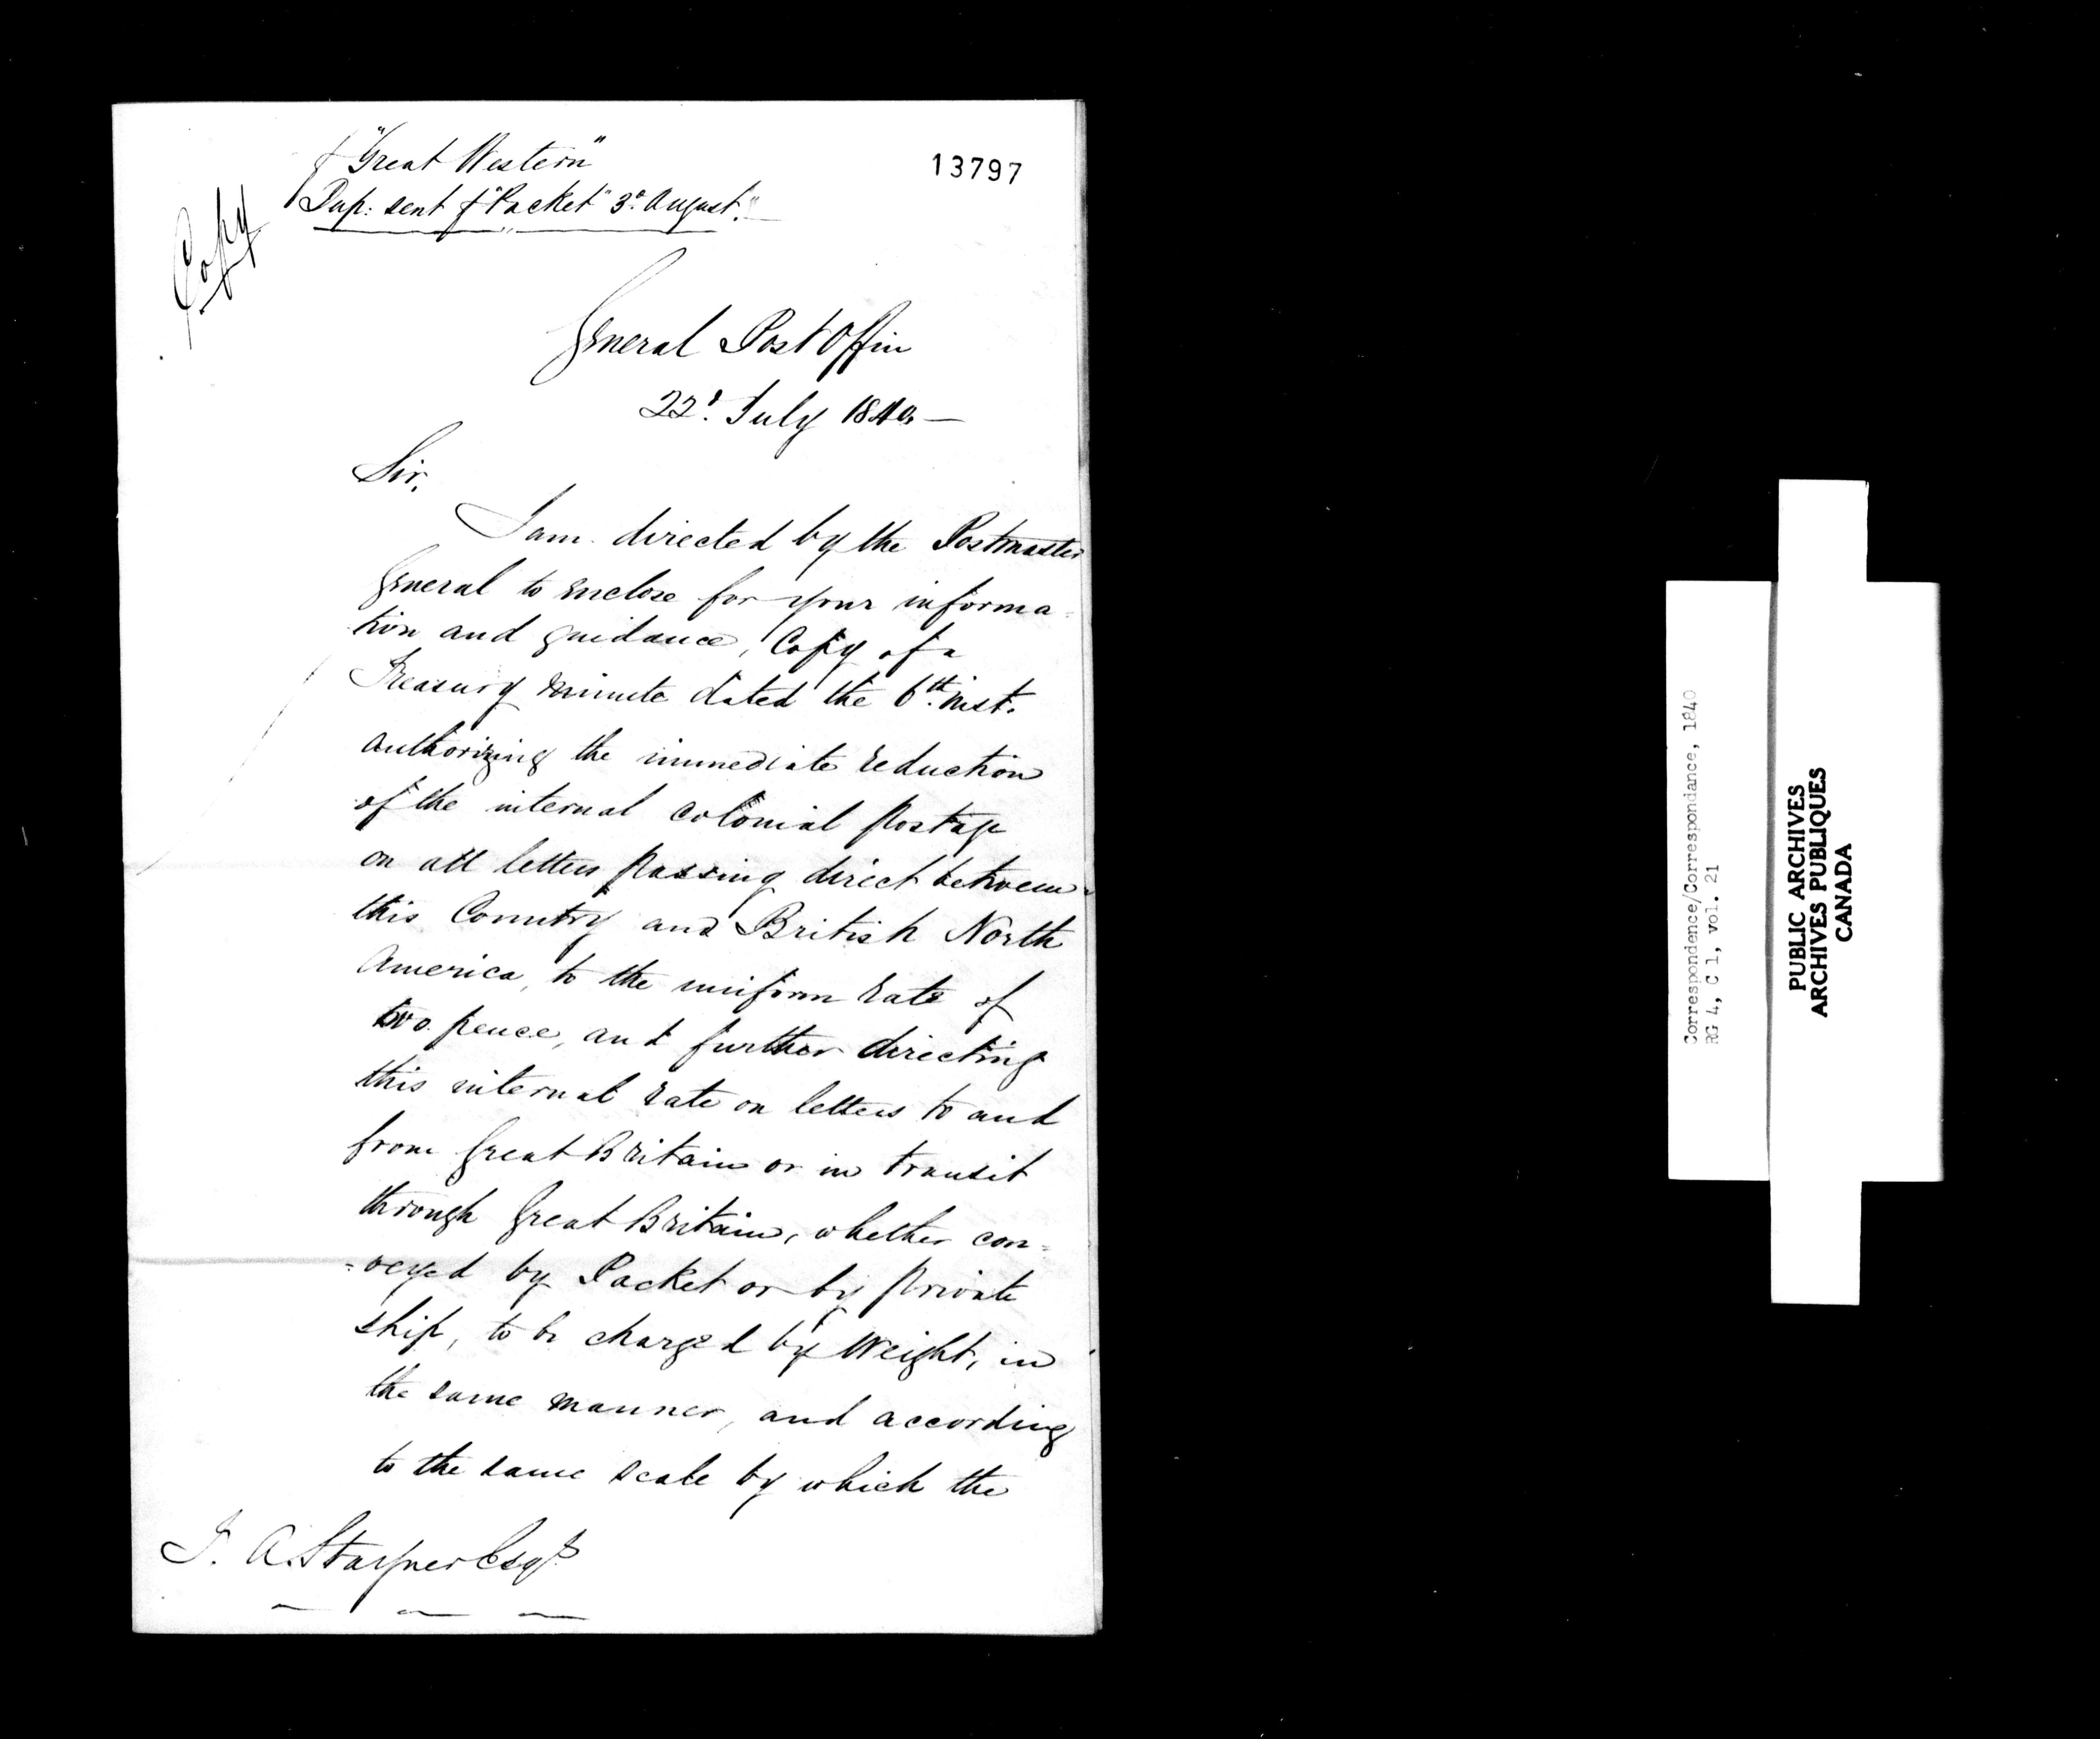 ⅌ "Great Western"
Dup: sent ⅌ "Packet" 3d. August.
13797
Copy
General Post Office
22d. July 1840.—
Sir,
I am directed by the Postmaster
General to enclose for your informa
tion and guidance, Copy of a
Treasury Minute dated the 6th. inst.
authorizing the immediate reduction
of the internal colonial postage
on all letters passing direct between
this Country and British North
America, to the uniform rate of
two pence, and further directing
this internal rate on letters to and
from Great Britain or in transit
through Great Britain, whether con=
=veyed by Packet or by private
ship, to be charged by Weight, in
the same manner, and according
to the same scale by which the
T. A. Stayner Esqr.
Correspondence/Correspondance, 1840
RG 4, C 1, vol. 21
PUBLIC ARCHIVES
ARCHIVES PUBLIQUES
CANADA